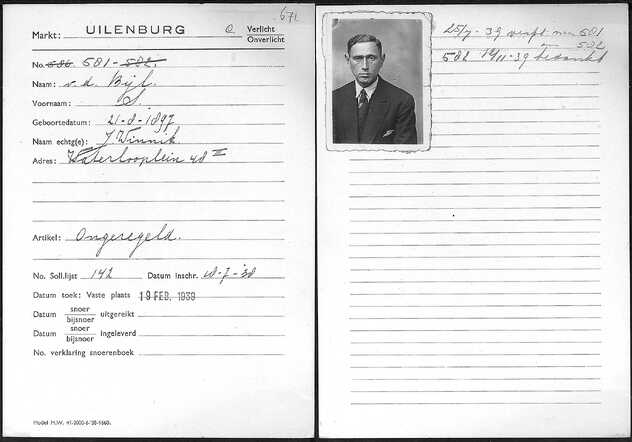 671
Markt: UILENBURG Verlicht
Onverlicht
No. 580 581 - 582.
Naam: v.d. Bijl.
Voornaam: S.
Geboortedatum: 21-8-1897
Naam echtg(e): J Winnik
Adres: Waterlooplein 48 III
Artikel: Ongeregeld.
No. Soll.lijst 142 Datum inschr. 18-7-38
Datum toek: Vaste plaats 19 FEB. 1939
Datum snoer
bijsnoer uitgereikt
Datum snoer
bijsnoer ingeleverd
No. verklaring snoerenboek
Model M.W.
25/7-39 nrs 581
en 582
582 14/11-39 bedankt